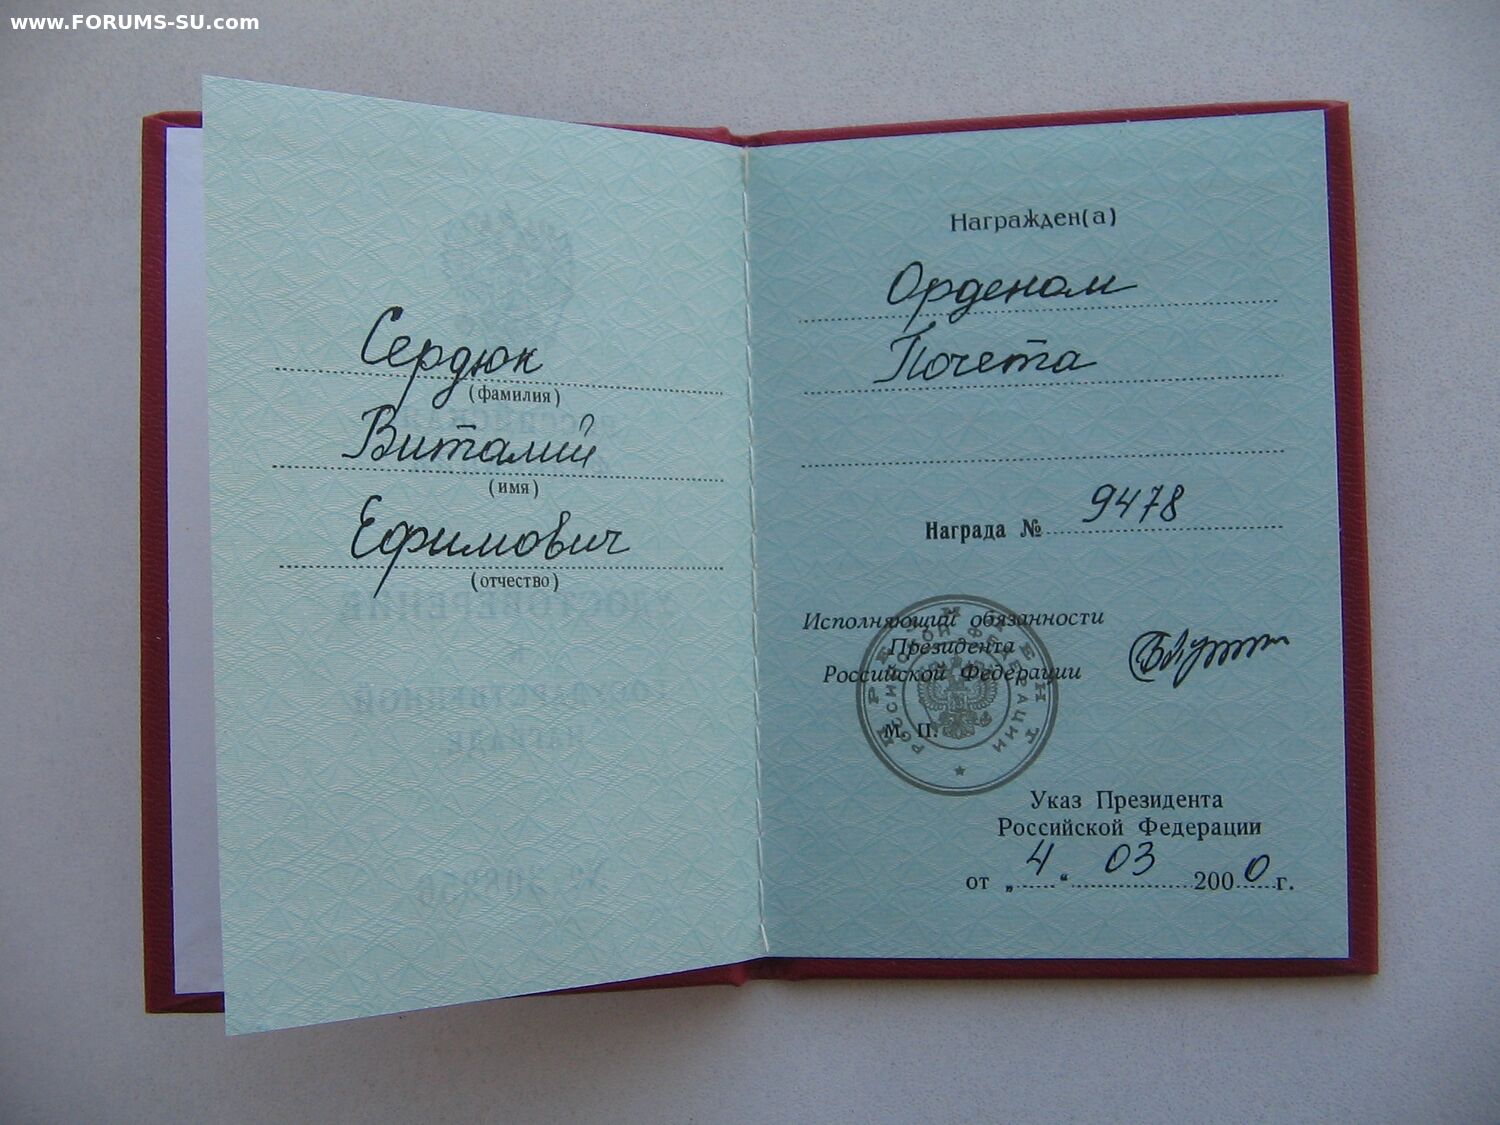 www.FORUMS-SU.com
Сердюк
(фамилия)
Виталий
(имя)
Ефимович
(отчество)
Награжден(а)
Орденом
Почета
Награда № 9478
Исполняющий обязанности
Президента
Российской Федерации
ПРЕЗИДЕНТ
РОССИЙСКОЙ ФЕДЕРАЦИИ
М. П.
Указ Президента
Российской Федерации
от „ 4 “ 03 2000 г.